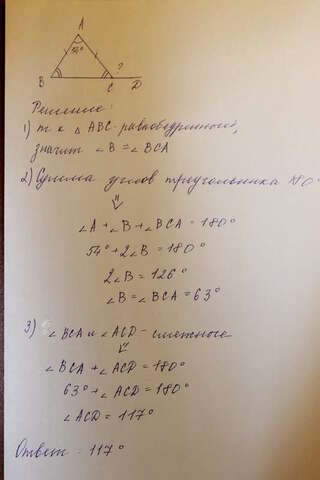 A
54°
?
B C D
Решение:
1) т.к △ ABC - равнобедренный,
значит ∠B = ∠BCA
2) Сумма углов треугольника 180°
⇓
∠A + ∠B + ∠BCA = 180°
54° + 2∠B = 180°
2∠B = 126°
∠B = ∠BCA = 63°
3) ∠BCA и ∠ACD - смежные
⇓
∠BCA + ∠ACD = 180°
63° + ∠ACD = 180°
∠ACD = 117°
Ответ: 117°